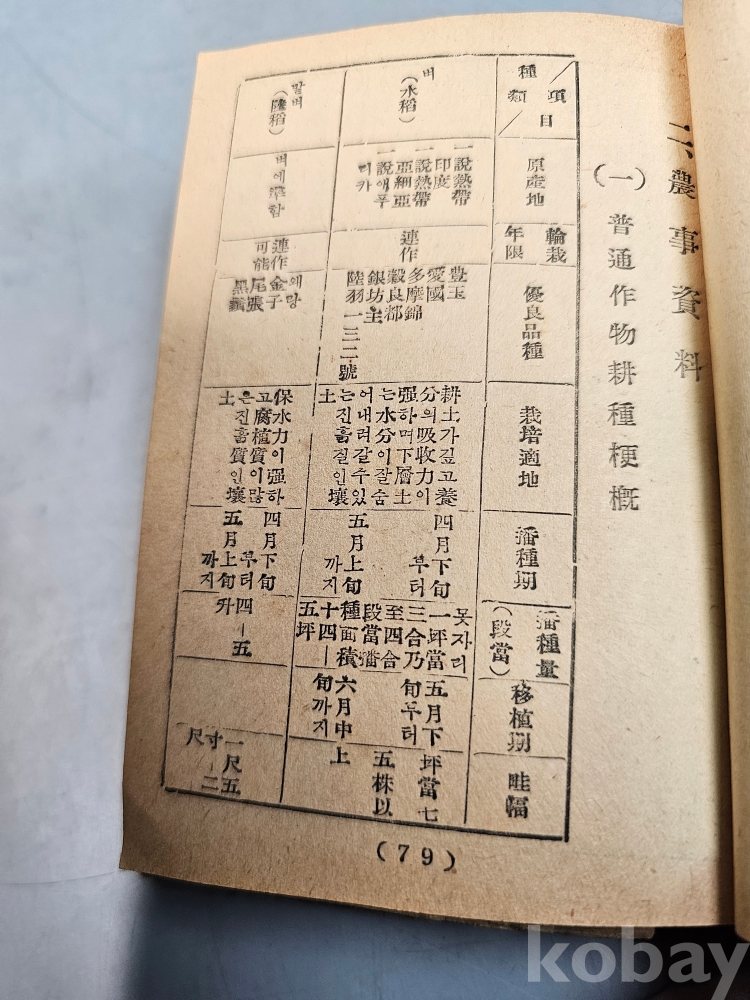 農事資料
(一) 普通作物耕種梗槪
項目
種類
原産地
輪栽
年限
優良品種
栽培適地
播種期
播種量
(段當)
移植期
畦幅
벼
(水稻)
一說熱帶
印度
一說熱帶
亞細亞
一說애푸
리카
連作
豊玉
愛國
多摩錦
穀良都
銀坊主
陸羽一三二號
耕土가깊고養
分의吸收力이
强하며下層土
는水分이잘숨
어내려갈수있
는진흙질인壤
土
四月下旬
부터
五月上旬
까지
못자리
一坪當
三合乃
至四合
段當播
種面積
十四—
五坪
五月下
旬부터
六月中
旬까지
坪當七
五株以
上
밭벼
(陸稻)
벼에準함
連作
可能
왜망
金子
尾張
黑糯
保水力이强하
고腐植質이많
은진흙質인壤
土
四月下旬
부터
五月上旬
까지
四—五
升
一尺五
寸—二
尺
(79)
kobay